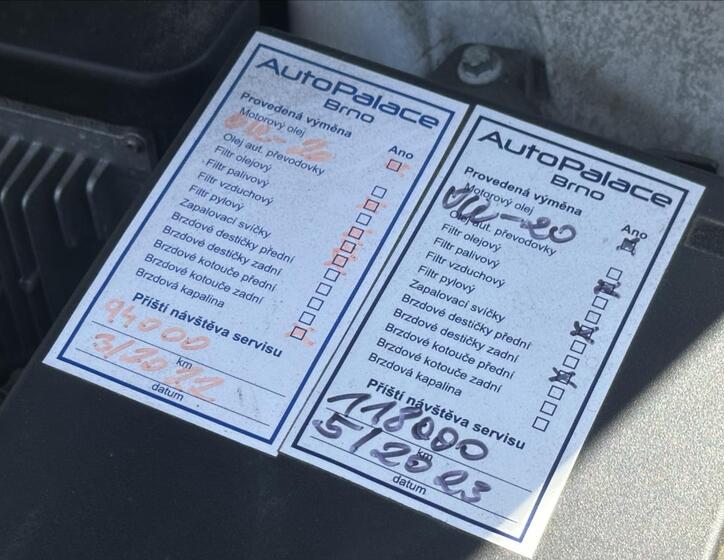 AutoPalace
Brno
Provedená výměna
Ano
Motorový olej
Olej aut. převodovky
Filtr olejový
Filtr palivový
Filtr vzduchový
Filtr pylový
Zapalovací svíčky
Brzdové destičky přední
Brzdové destičky zadní
Brzdové kotouče přední
Brzdové kotouče zadní
Brzdová kapalina
Příští návštěva servisu
94000
km
3/2022
datum
AutoPalace
Brno
Provedená výměna
Ano
Motorový olej
Olej aut. převodovky
Filtr olejový
Filtr palivový
Filtr vzduchový
Filtr pylový
Zapalovací svíčky
Brzdové destičky přední
Brzdové destičky zadní
Brzdové kotouče přední
Brzdové kotouče zadní
Brzdová kapalina
Příští návštěva servisu
118000
km
5/2023
datum